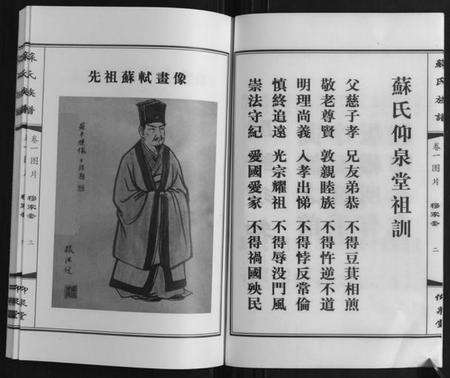 蘇氏族譜
卷一图片
二
仰泉堂
蘇氏仰泉堂祖訓
父慈子孝 兄友弟恭 不得豆萁相煎
敬老尊賢 敦親睦族 不得忤逆不道
明理尚義 入孝出悌 不得悖反常倫
慎終追遠 光宗耀祖 不得辱没門風
崇法守紀 愛國愛家 不得禍國殃民
先祖蘇軾畫像
蘇氏族譜
卷一图片
二
仰泉堂